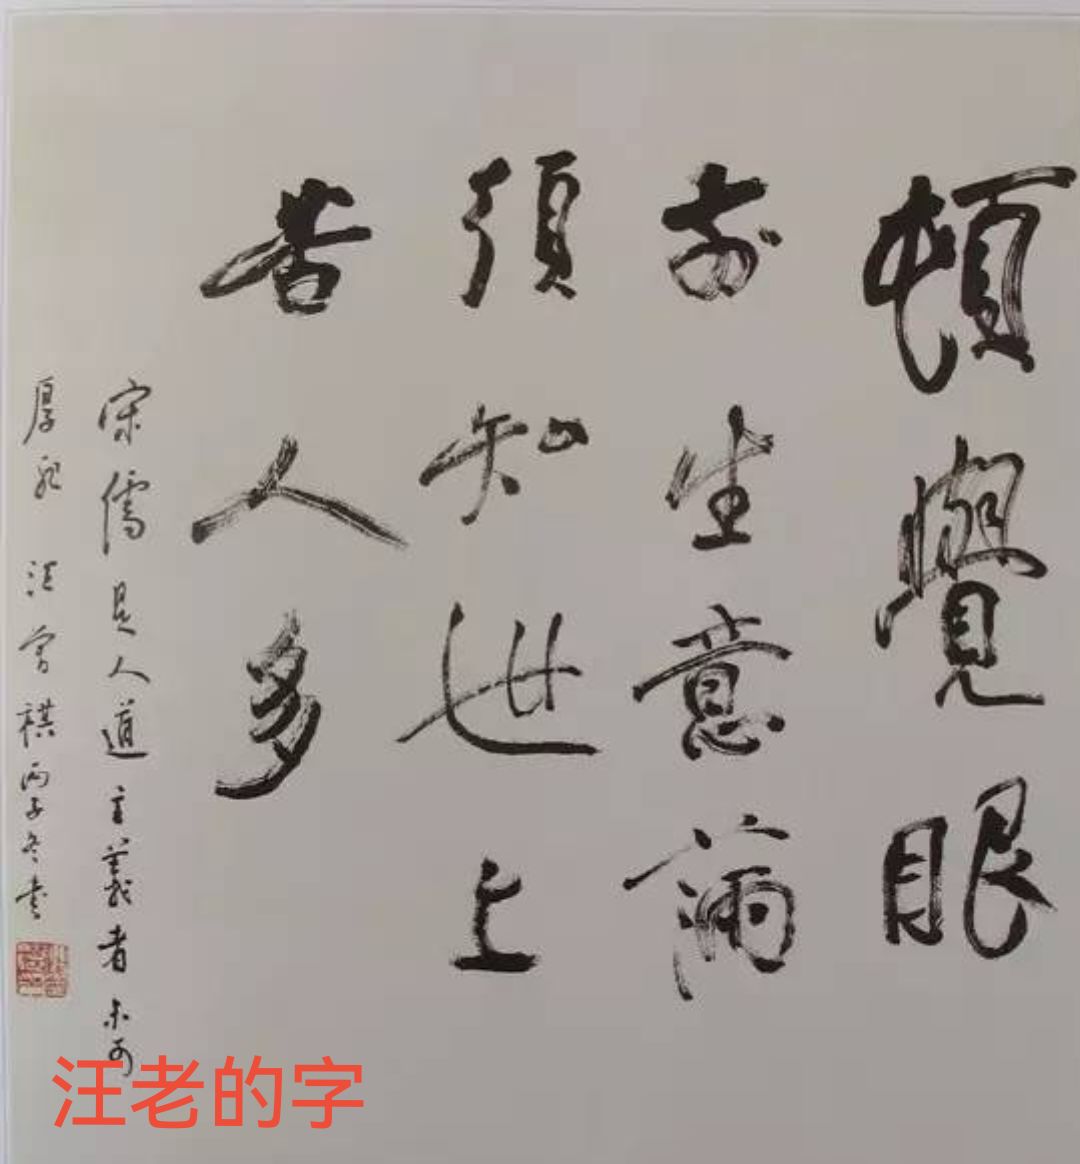 頓覺眼
前生意滿
須知世上
苦人多
宋儒是人道主義者未可
厚非 汪曾祺丙子冬書
汪老的字